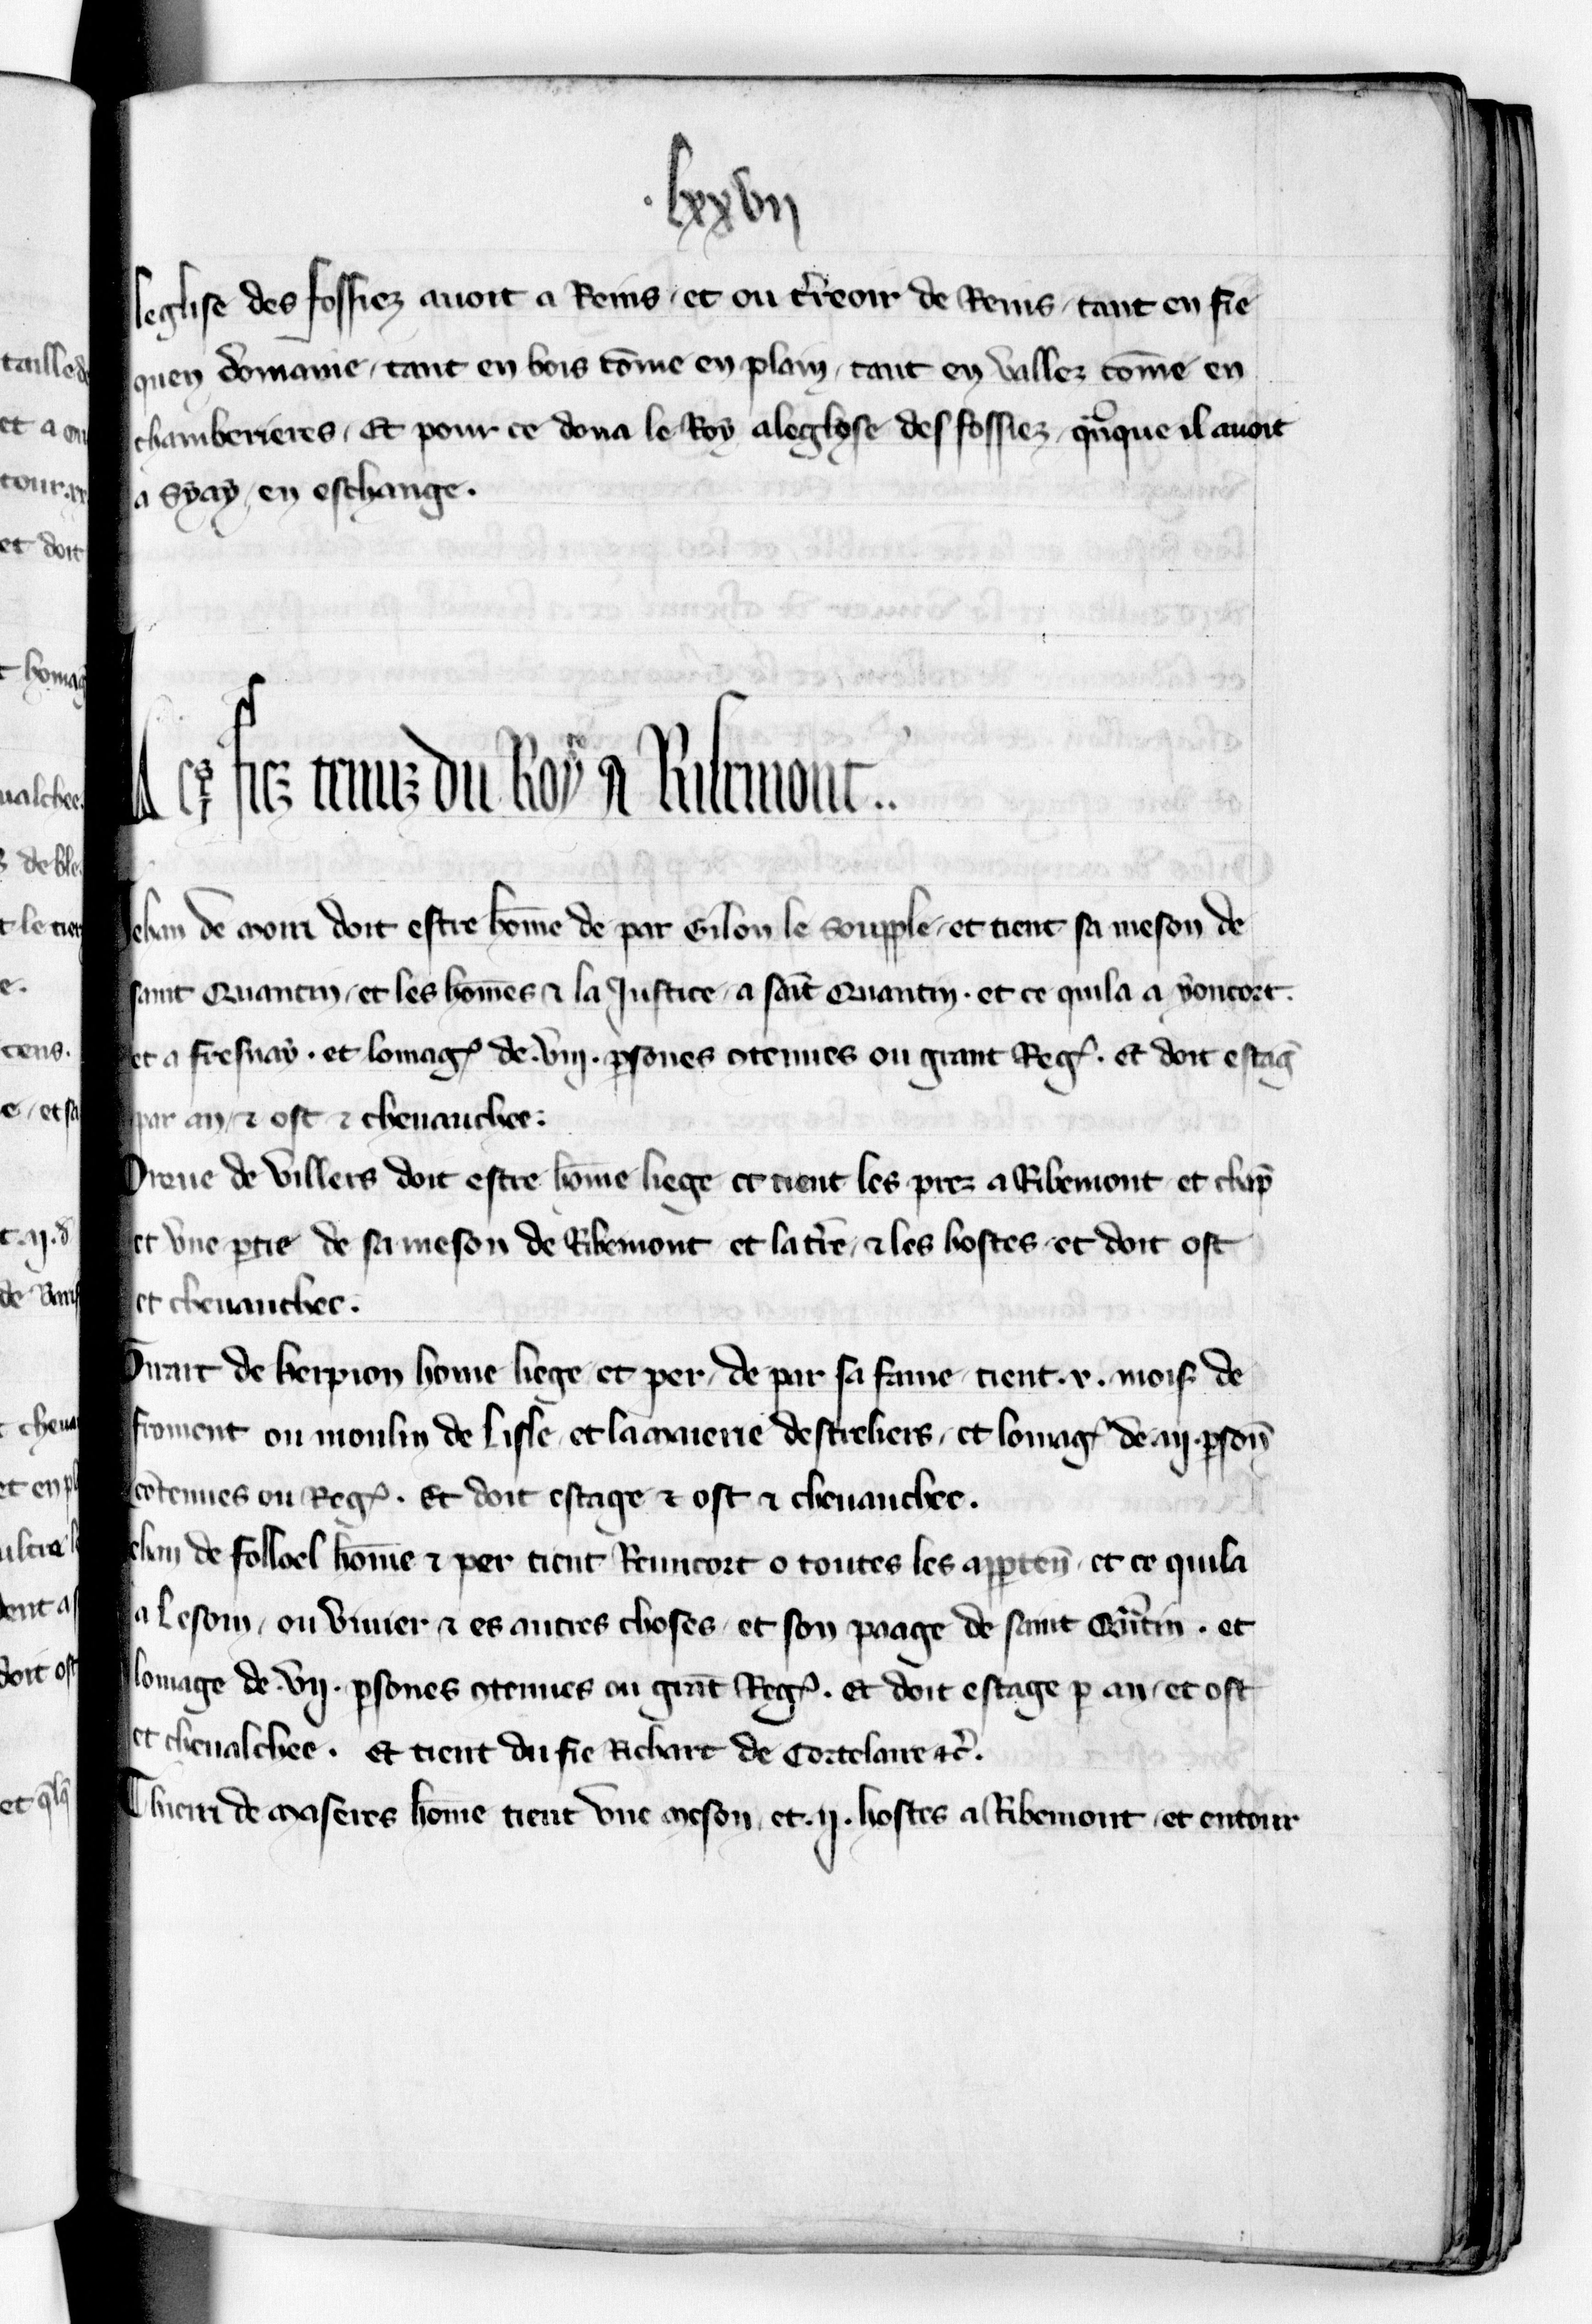 .lxxvii
leglise des fossiez auoit a Reins / et ou t'reoir de Reins / tant en fie
quen domaine / tant en bois cōme en plain / tant en vallez cōme en
chamberieres / Et pour ce dona le Roy a leglyse des fossiez / qnque il auoit
a Syay / en eschange.
Les fiez tenuz du Roy a Ribemont..
Jehan de moui doit estre hōme de par Gilon le Soupple / et tient sa meson de
saint Quantin / et les hōmes ⁊ la Justice / a sait Quantin . et ce quila a voncort.
et a fresnay . et lomagꝭ de .viij. ꝑsones ꝯtenues ou grant Regꝭ . Et doit estag̅
par an / ⁊ ost ⁊ cheuauchee:
Dreue de villers doit estre hōme liege et tient les prez a Ribemont et chāp
et vne ꝑtie de sa meson de Ribemont et la t're / ⁊ les hostes et doit ost
et cheuauchee.
de herpion home liege / et per / de par sa fame / tient .x. mois de
froment ou moulin de lisle / et la destreliers / et lomagꝭ de .iij. ꝑson̄
cōtenues ou Regꝭ . Et doit estage ⁊ ost ⁊ cheuauchee.
Jehan de folloel hōme ⁊ per tient Renncort o toutes les apꝑten̄ / et ce quila
a Lesom / ou viuier ⁊ es autres choses / et son paage de saint Qntin . et
lomage de .vij. ꝑsones ꝯtenues ou grāt Regꝭ . Et doit estage ꝑ an / et ost
et cheualchee . Et tient du fie Richart de Cortelaire ⁊c̄.
Thierri de maseres hōme tient vne meson / et .ij. hostes a Ribemont / et entour